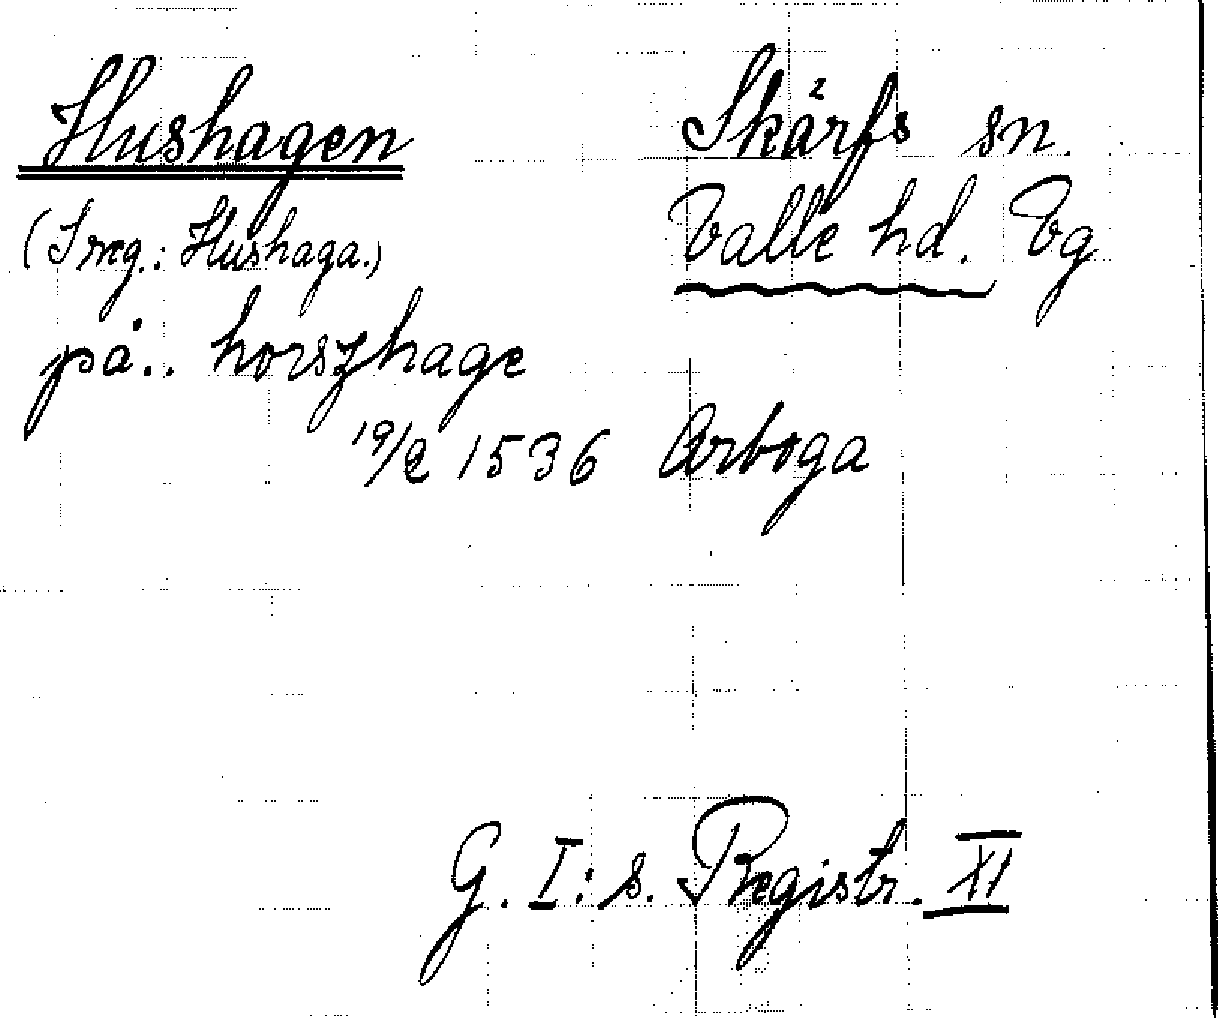 Hushagen Skärfs sn.
(I reg.: Hushaga.) Valle hd. Vg
på.. horszhage
19/2 1536 Arboga
G. I:s. Registr. XI